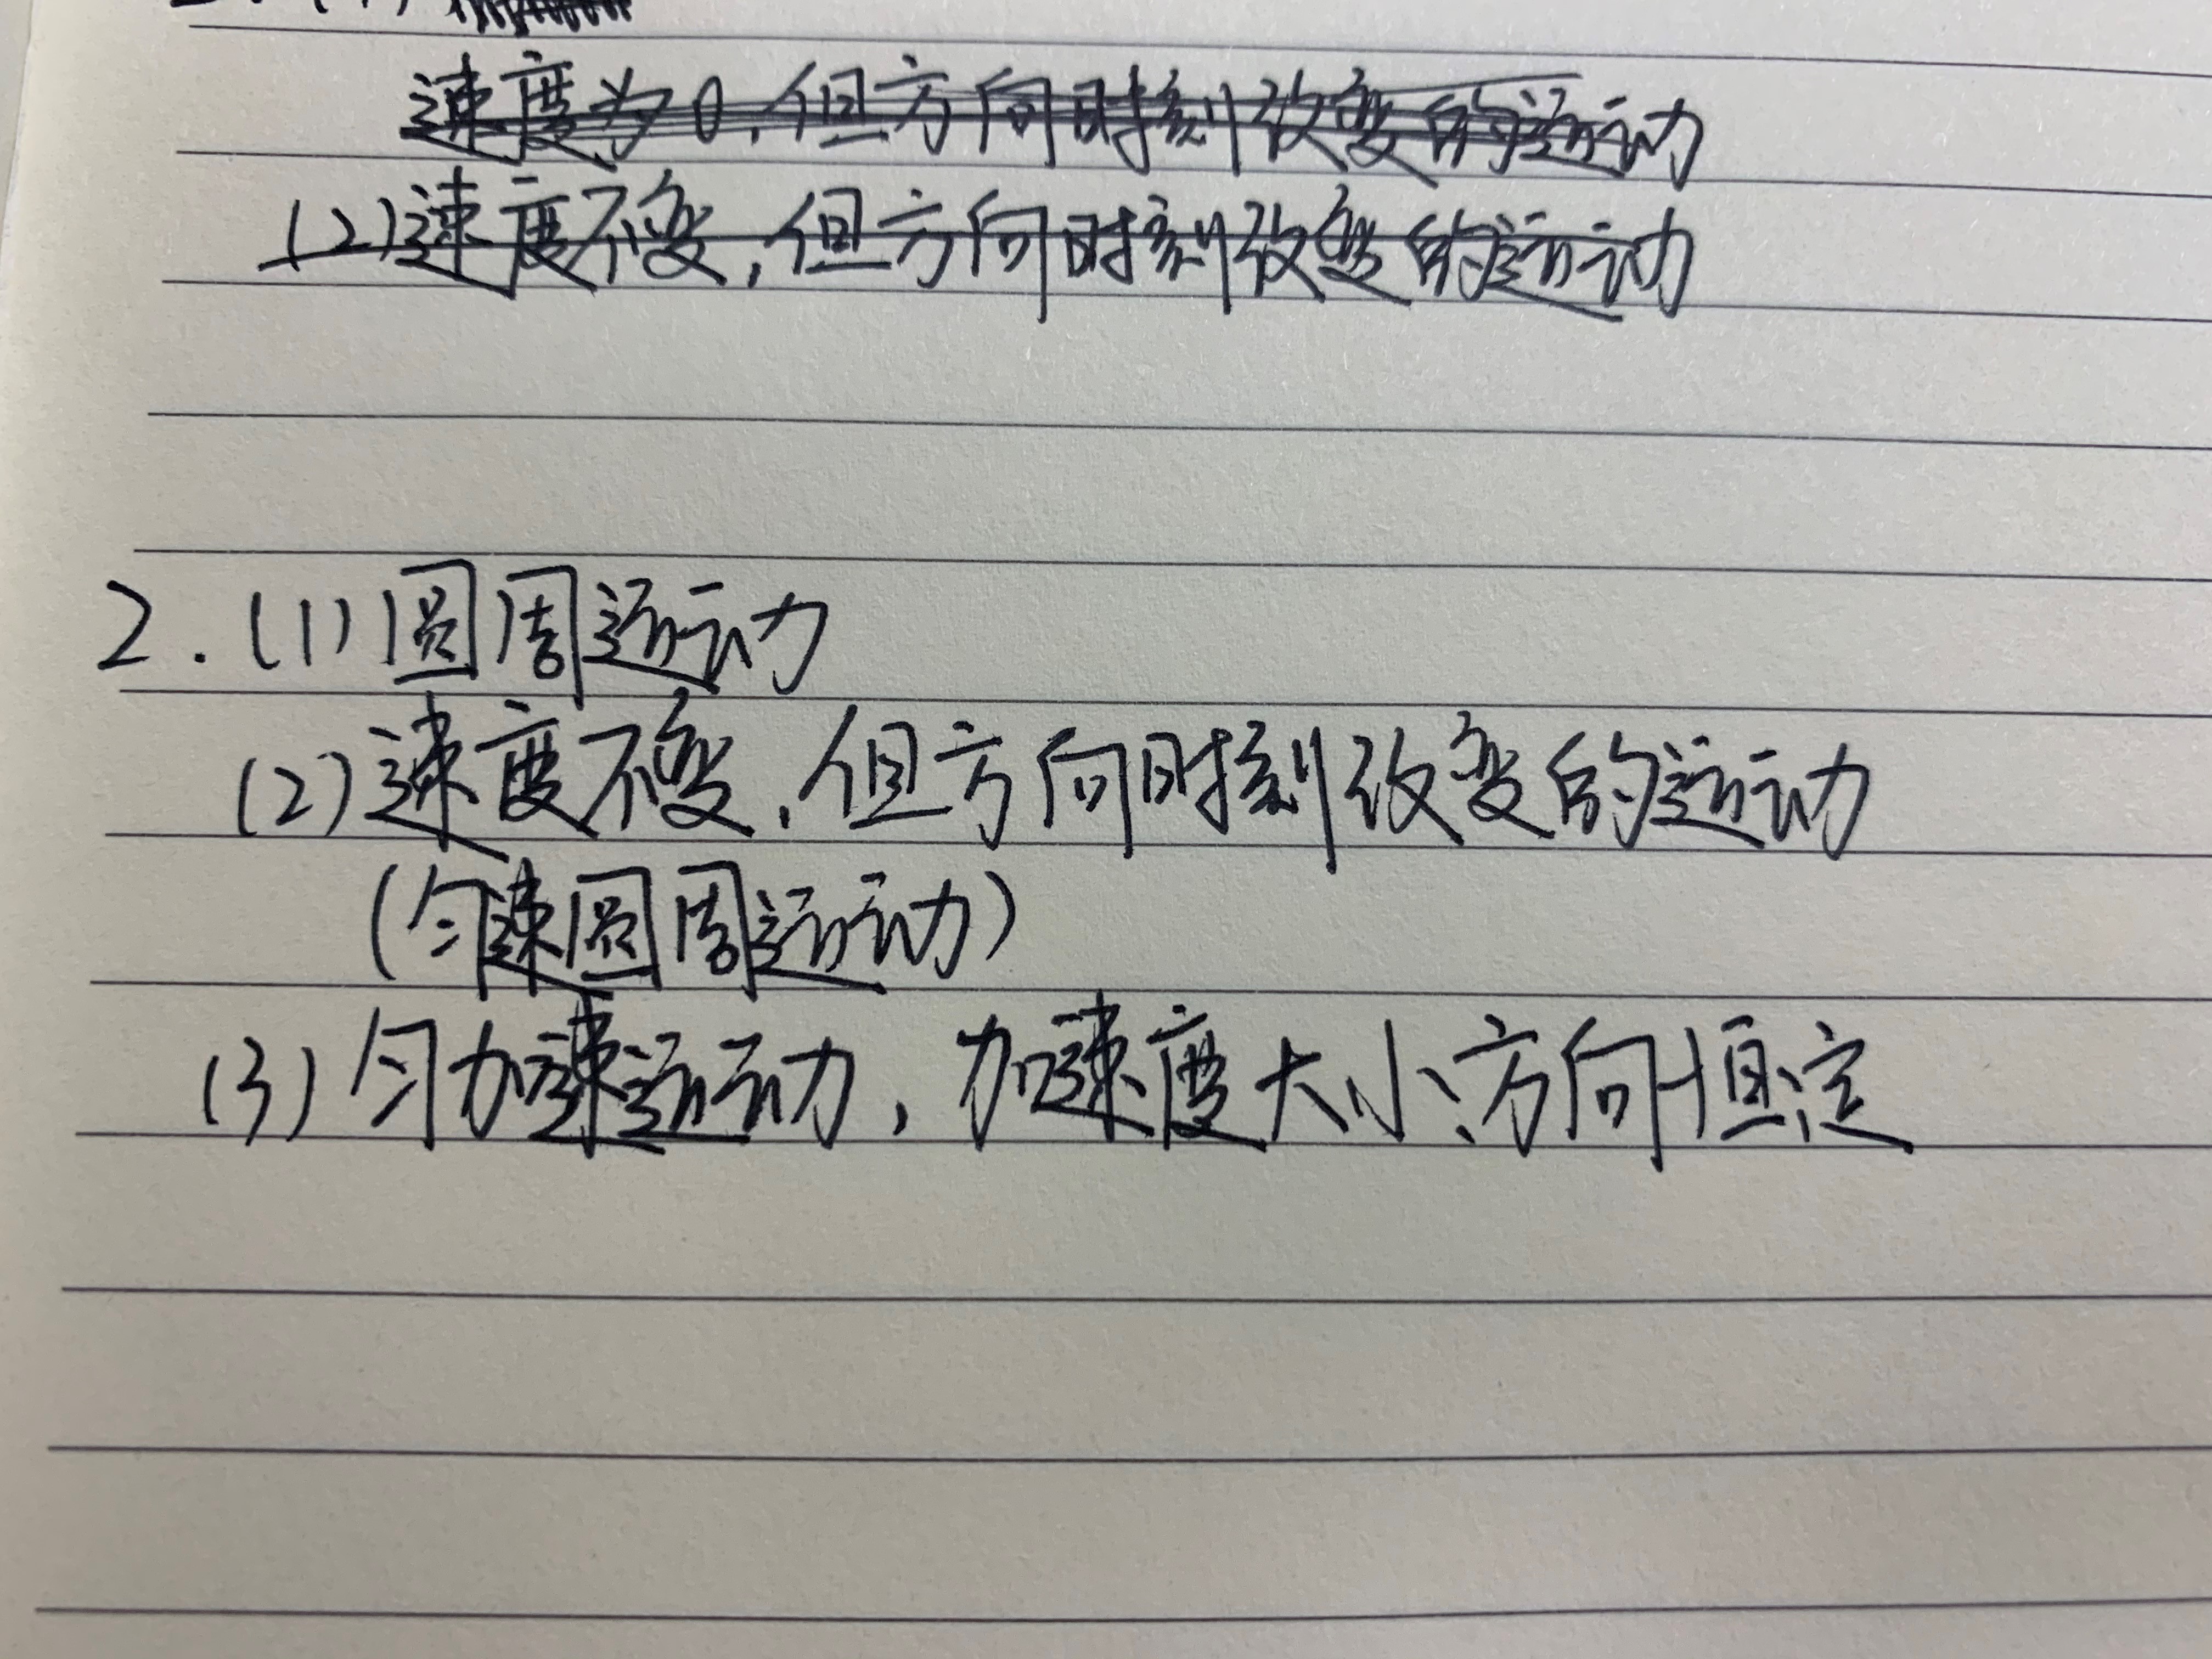 速度为0,但方向时刻改变的运动
(2)速度不变,但方向时刻改变的运动
2.(1)圆周运动
(2)速度不变,但方向时刻改变的运动
(匀速圆周运动)
(3)匀加速运动,加速度大小、方向恒定